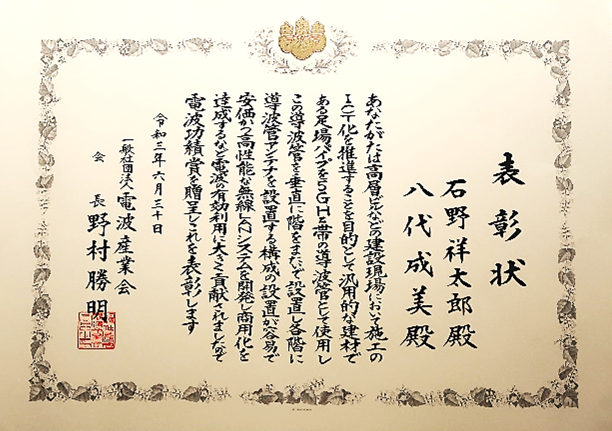 表彰状
石野祥太郎殿
八代成美殿
あなたがたは高層ビルなどの建設現場において施工の
ICT化を推進することを目的として汎用的な建材で
ある足場パイプを5GHz帯の導波管として使用し
この導波管を垂直に階をまたいで設置し各階に
導波管アンテナを設置する構成の設置が容易で
安価かつ高性能な無線LANシステムを開発し商用化を
達成するなど電波の有効利用に大きく貢献されましたので
電波功績賞を贈呈しこれを表彰します
令和三年六月三十日
一般社団法人 電波産業会
会長 野村勝明